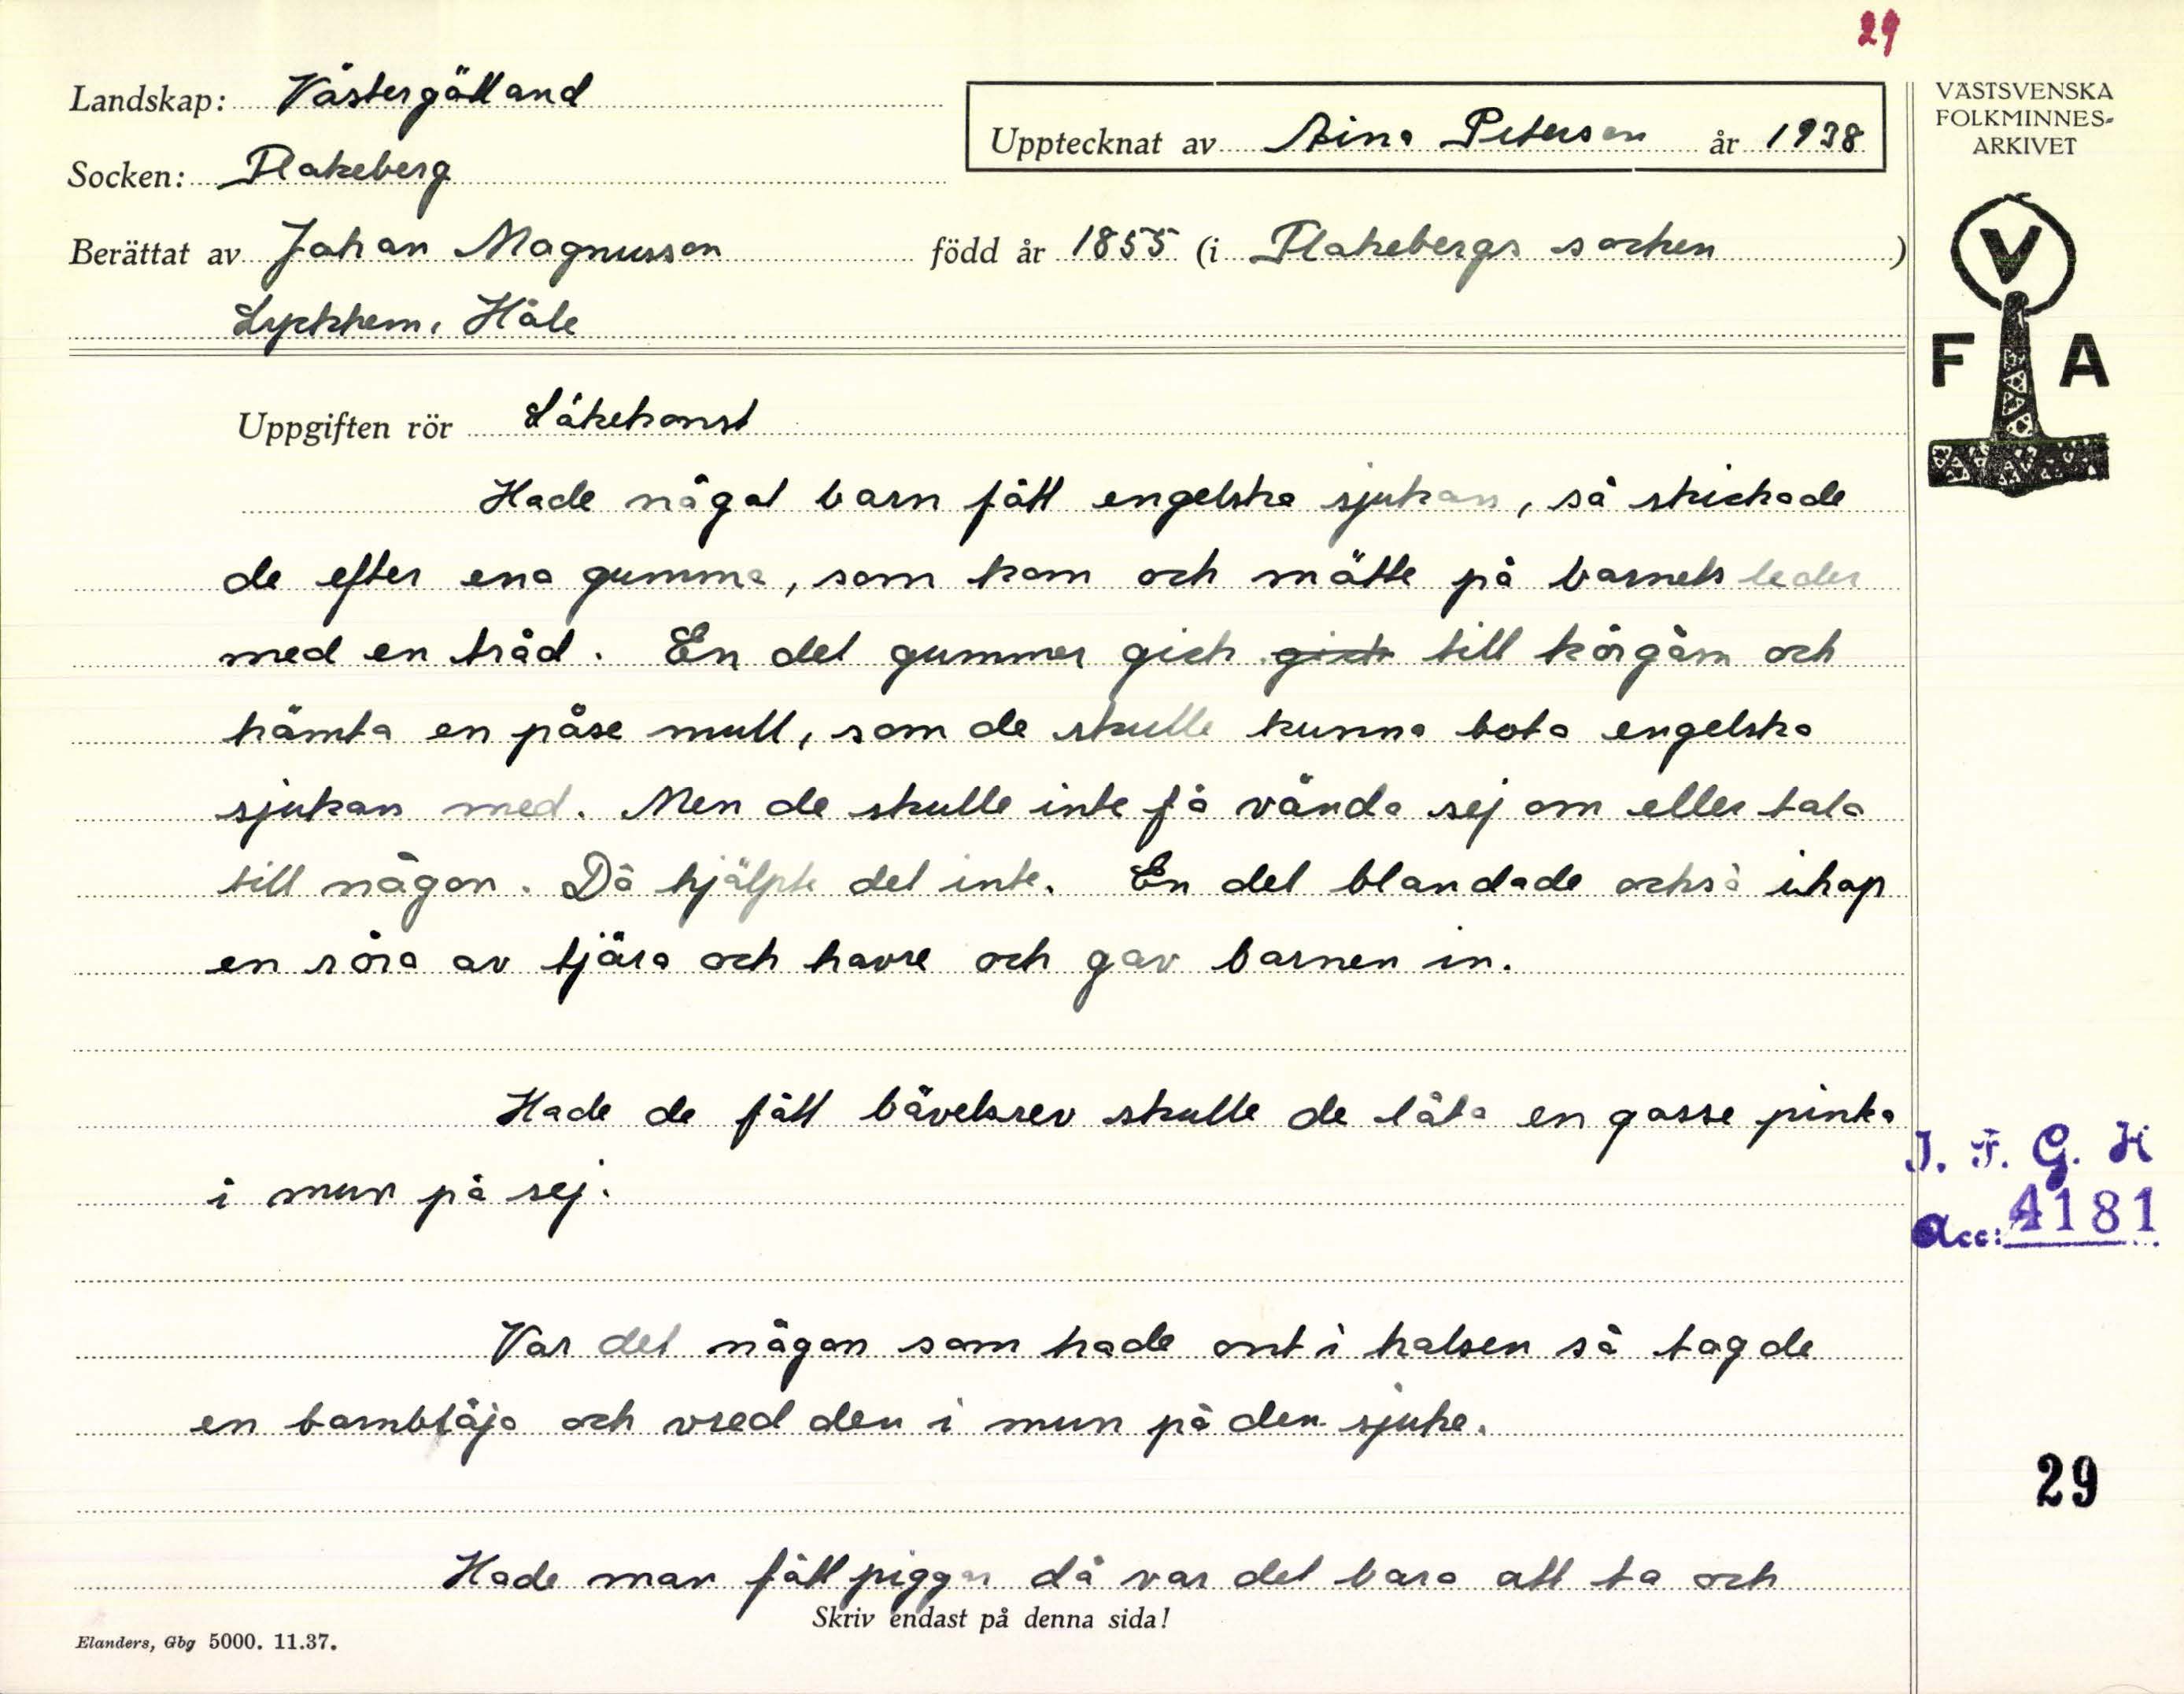 29
Landskap: Västergötland
Upptecknat av Aina Petersen år 1938
VÄSTSVENSKA
FOLKMINNES-
ARKIVET
Socken: Flakeberg
Berättat av Johan Magnusson född år 1855 (i Flakebergs socken)
Lyckhem, Håle
V
F A
Uppgiften rör Läkekonst
Hade något barn fått engelska sjukan, så skickade
de efter ena gumma, som kom och mätte på barnets leder
med en tråd. En del gummer gick gick till körgårn och
hämta en påse mull, som de skulle kunna bota engelska
sjukan med. Men de skulle inte få vända sej om eller tala
till någon. Då hjälpte det inte. En del blandade också ihop
en röra av tjära och havre och gav barnen in.
Hade de fått bävelsrev skulle de låta en gosse pinka
i mun på sej.
I. F. G. H
Acc: 4181
Var det någon som hade ont i halsen så tog de
en barnblöja och vred den i mun på den sjuke.
29
Hade man fått piggar då var det bara att ta och
Skriv endast på denna sida!
Elanders, Gbg 5000. 11.37.